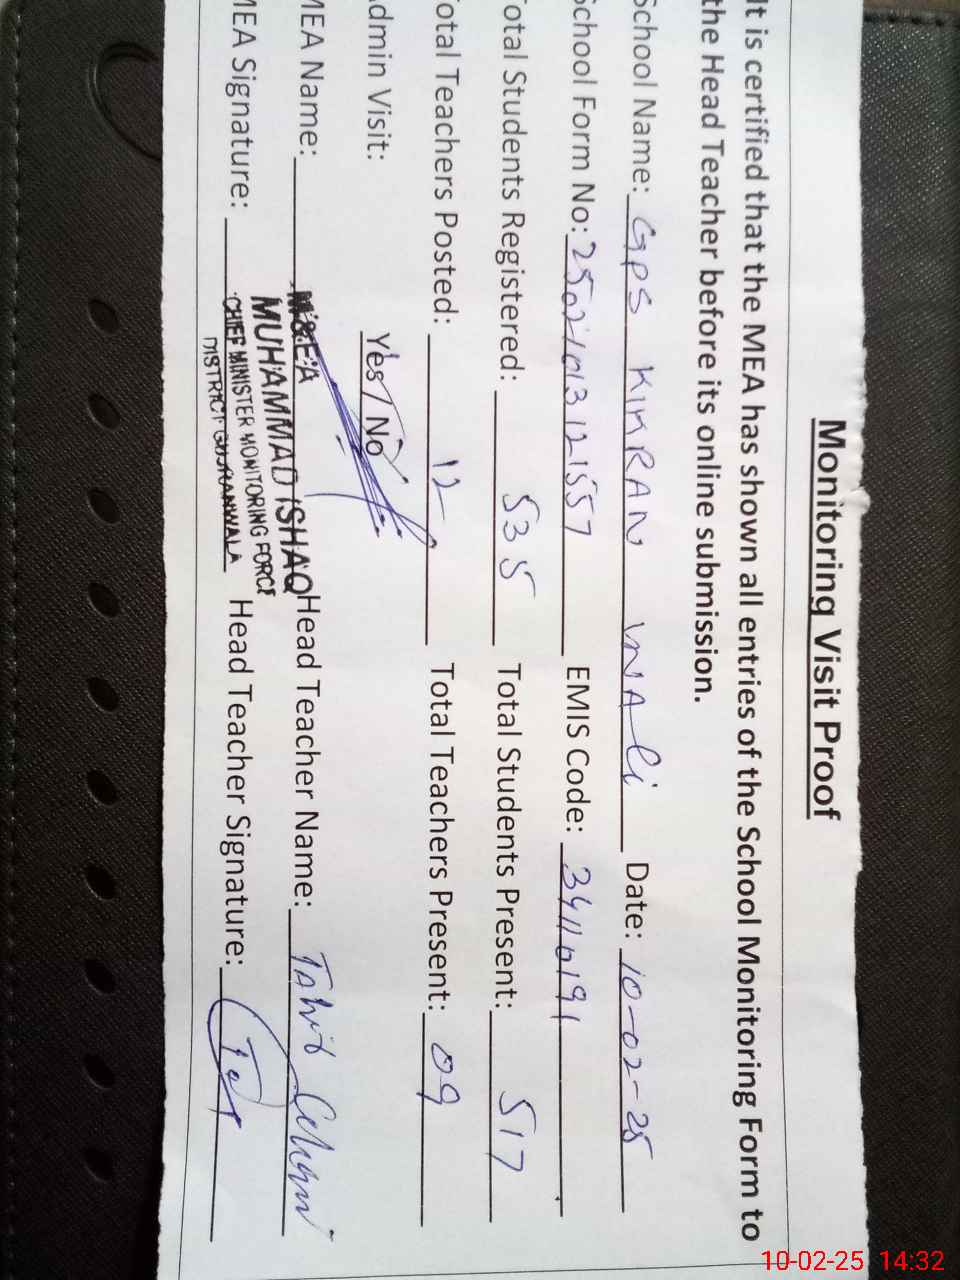 Monitoring Visit Proof
It is certified that the MEA has shown all entries of the School Monitoring Form to
the Head Teacher before its online submission.
School Name: GPS KIKRAN WALi Date: 10-02-25
School Form No: EMIS Code: 34110191
Total Students Registered: 535 Total Students Present: 517
Total Teachers Posted: 12 Total Teachers Present: 09
Admin Visit: Yes / No
MEA Name: M&E:A Head Teacher Name: TAhir
MUHAMMAD ISHAQ
MEA Signature: CHIEF MINISTER MONITORING FORCE Head Teacher Signature:
DISTRICT GUJRANWALA
10-02-25 14:32